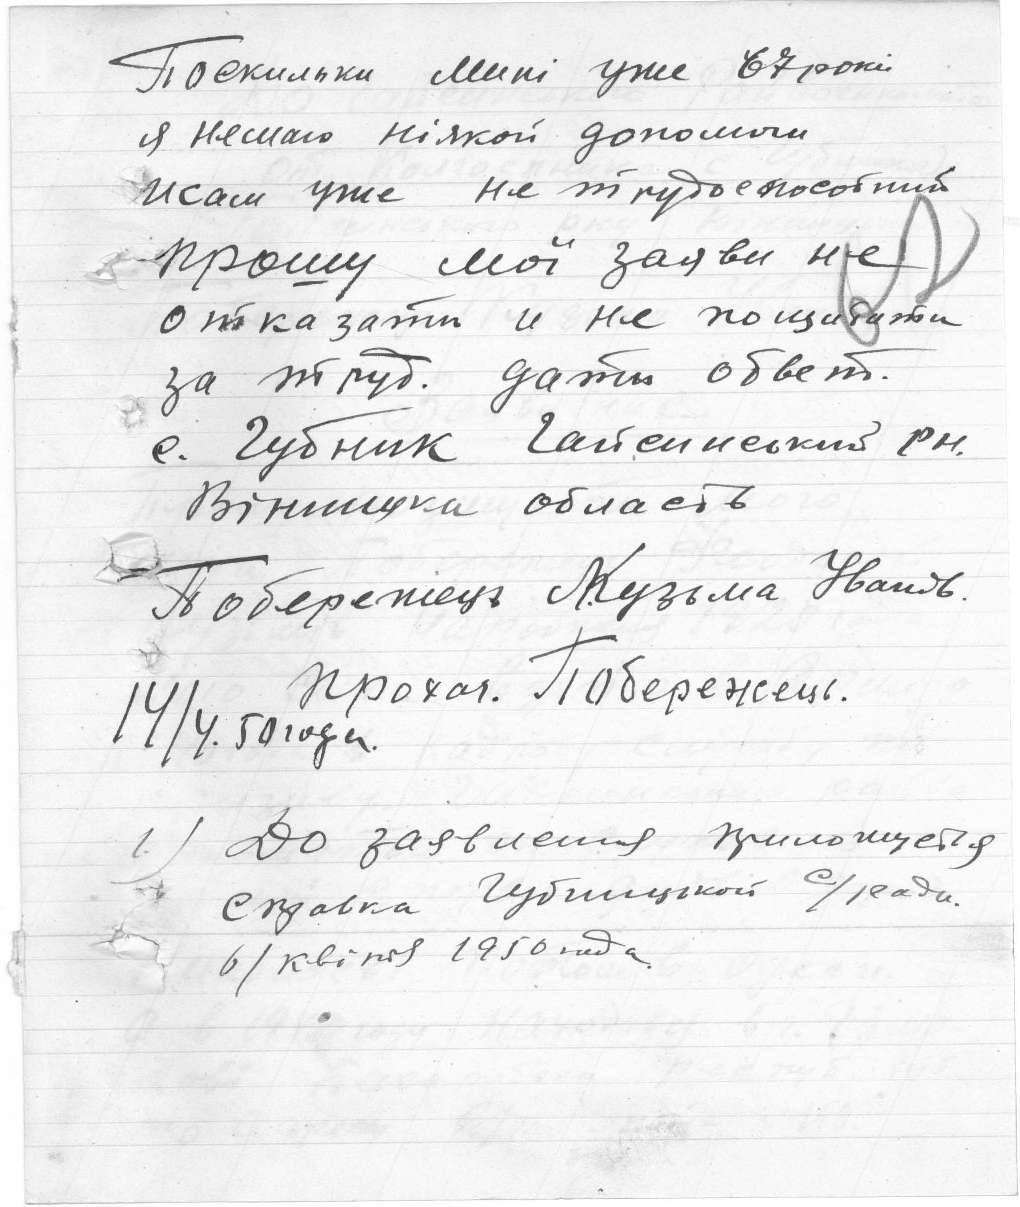 Поскильки мині уже 67 рокі
я немаю ніякой допомочи
и сам уже не трудоспособний
прошу мої заяви не
отказати и не пощитати
за труд. дати обвет.
с. Губник Гайсинський рн.
Вінницка область
Побережець Кузьма Іванов.
Прохач. Побережець.
14/4. 50 года.
1.) До заявления приложуется
справка Губницькой с/ради.
6/ квітня 1950 года.